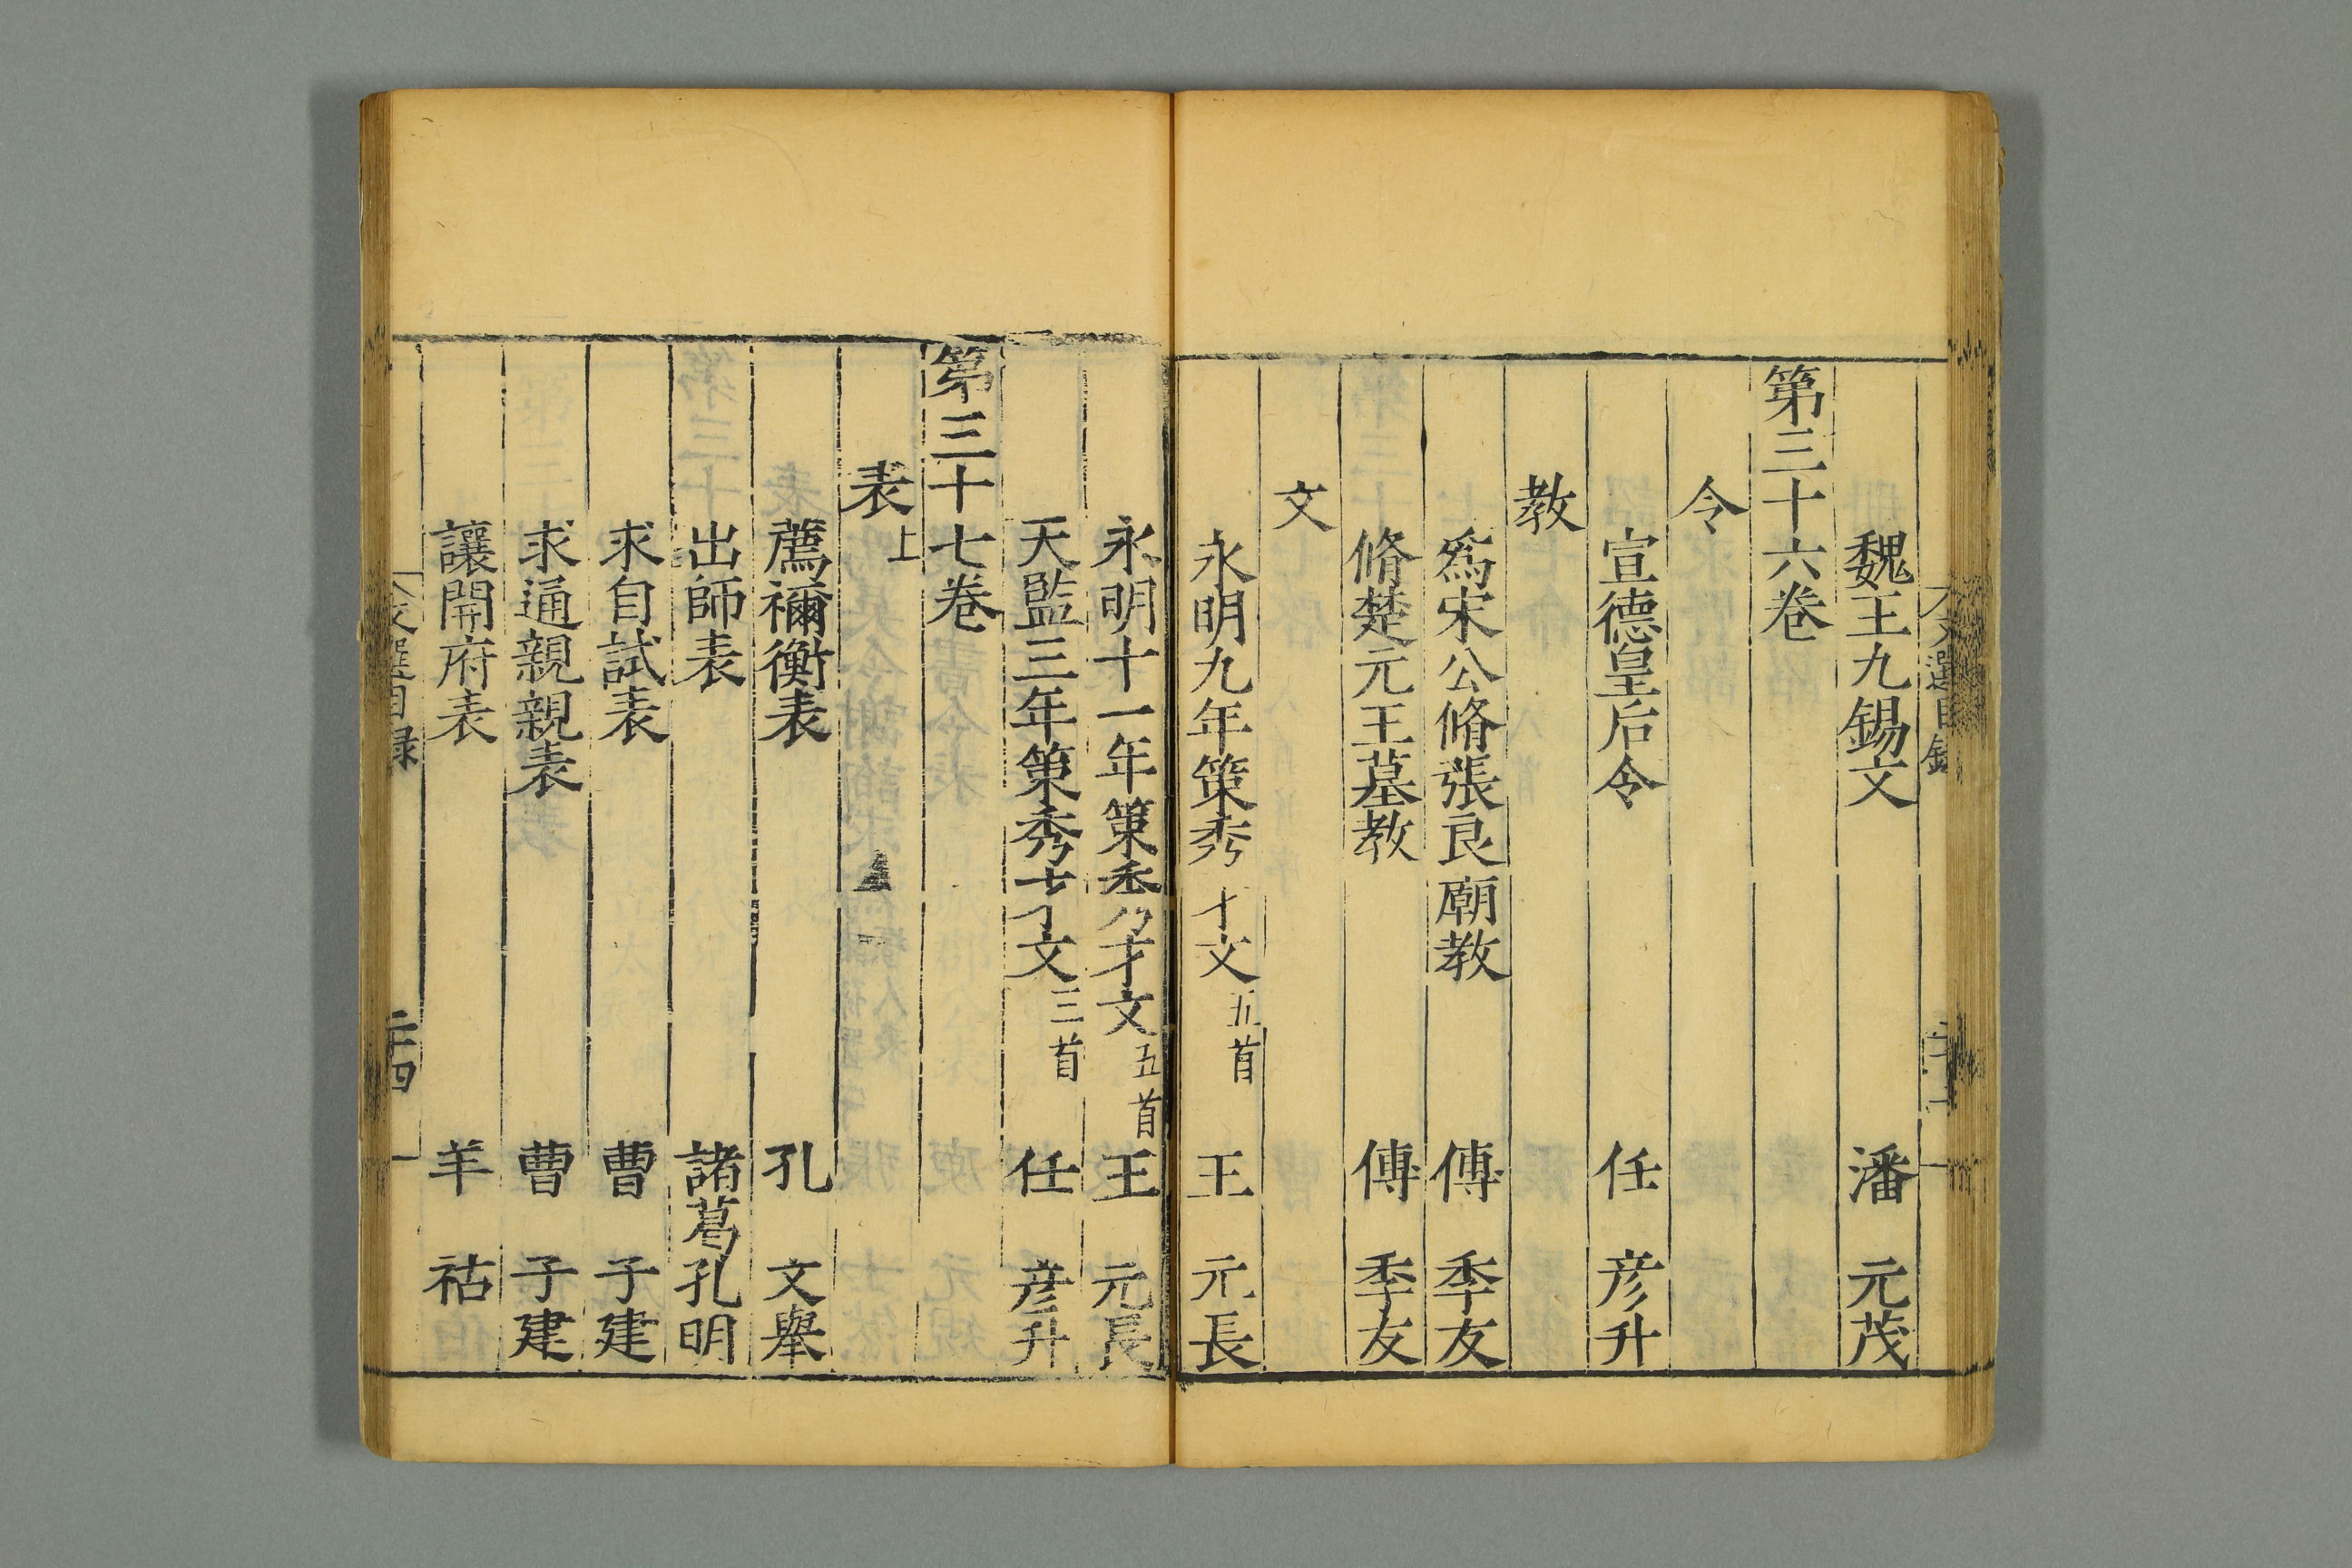 魏王九錫文 潘 元茂
第三十六卷
令
宣德皇后令 任 彦升
教
爲宋公脩張良廟教 傅 季友
脩楚元王墓教 傅 季友
文
永明九年策秀才文 五首 王 元長
永明十一年策秀才文 五首 王 元長
天監三年策秀才文 三首 任 彦升
第三十七卷
表上
薦禰衡表 孔 文舉
出師表 諸葛孔明
求自試表 曹 子建
求通親親表 曹 子建
讓開府表 羊 祜
文選目録